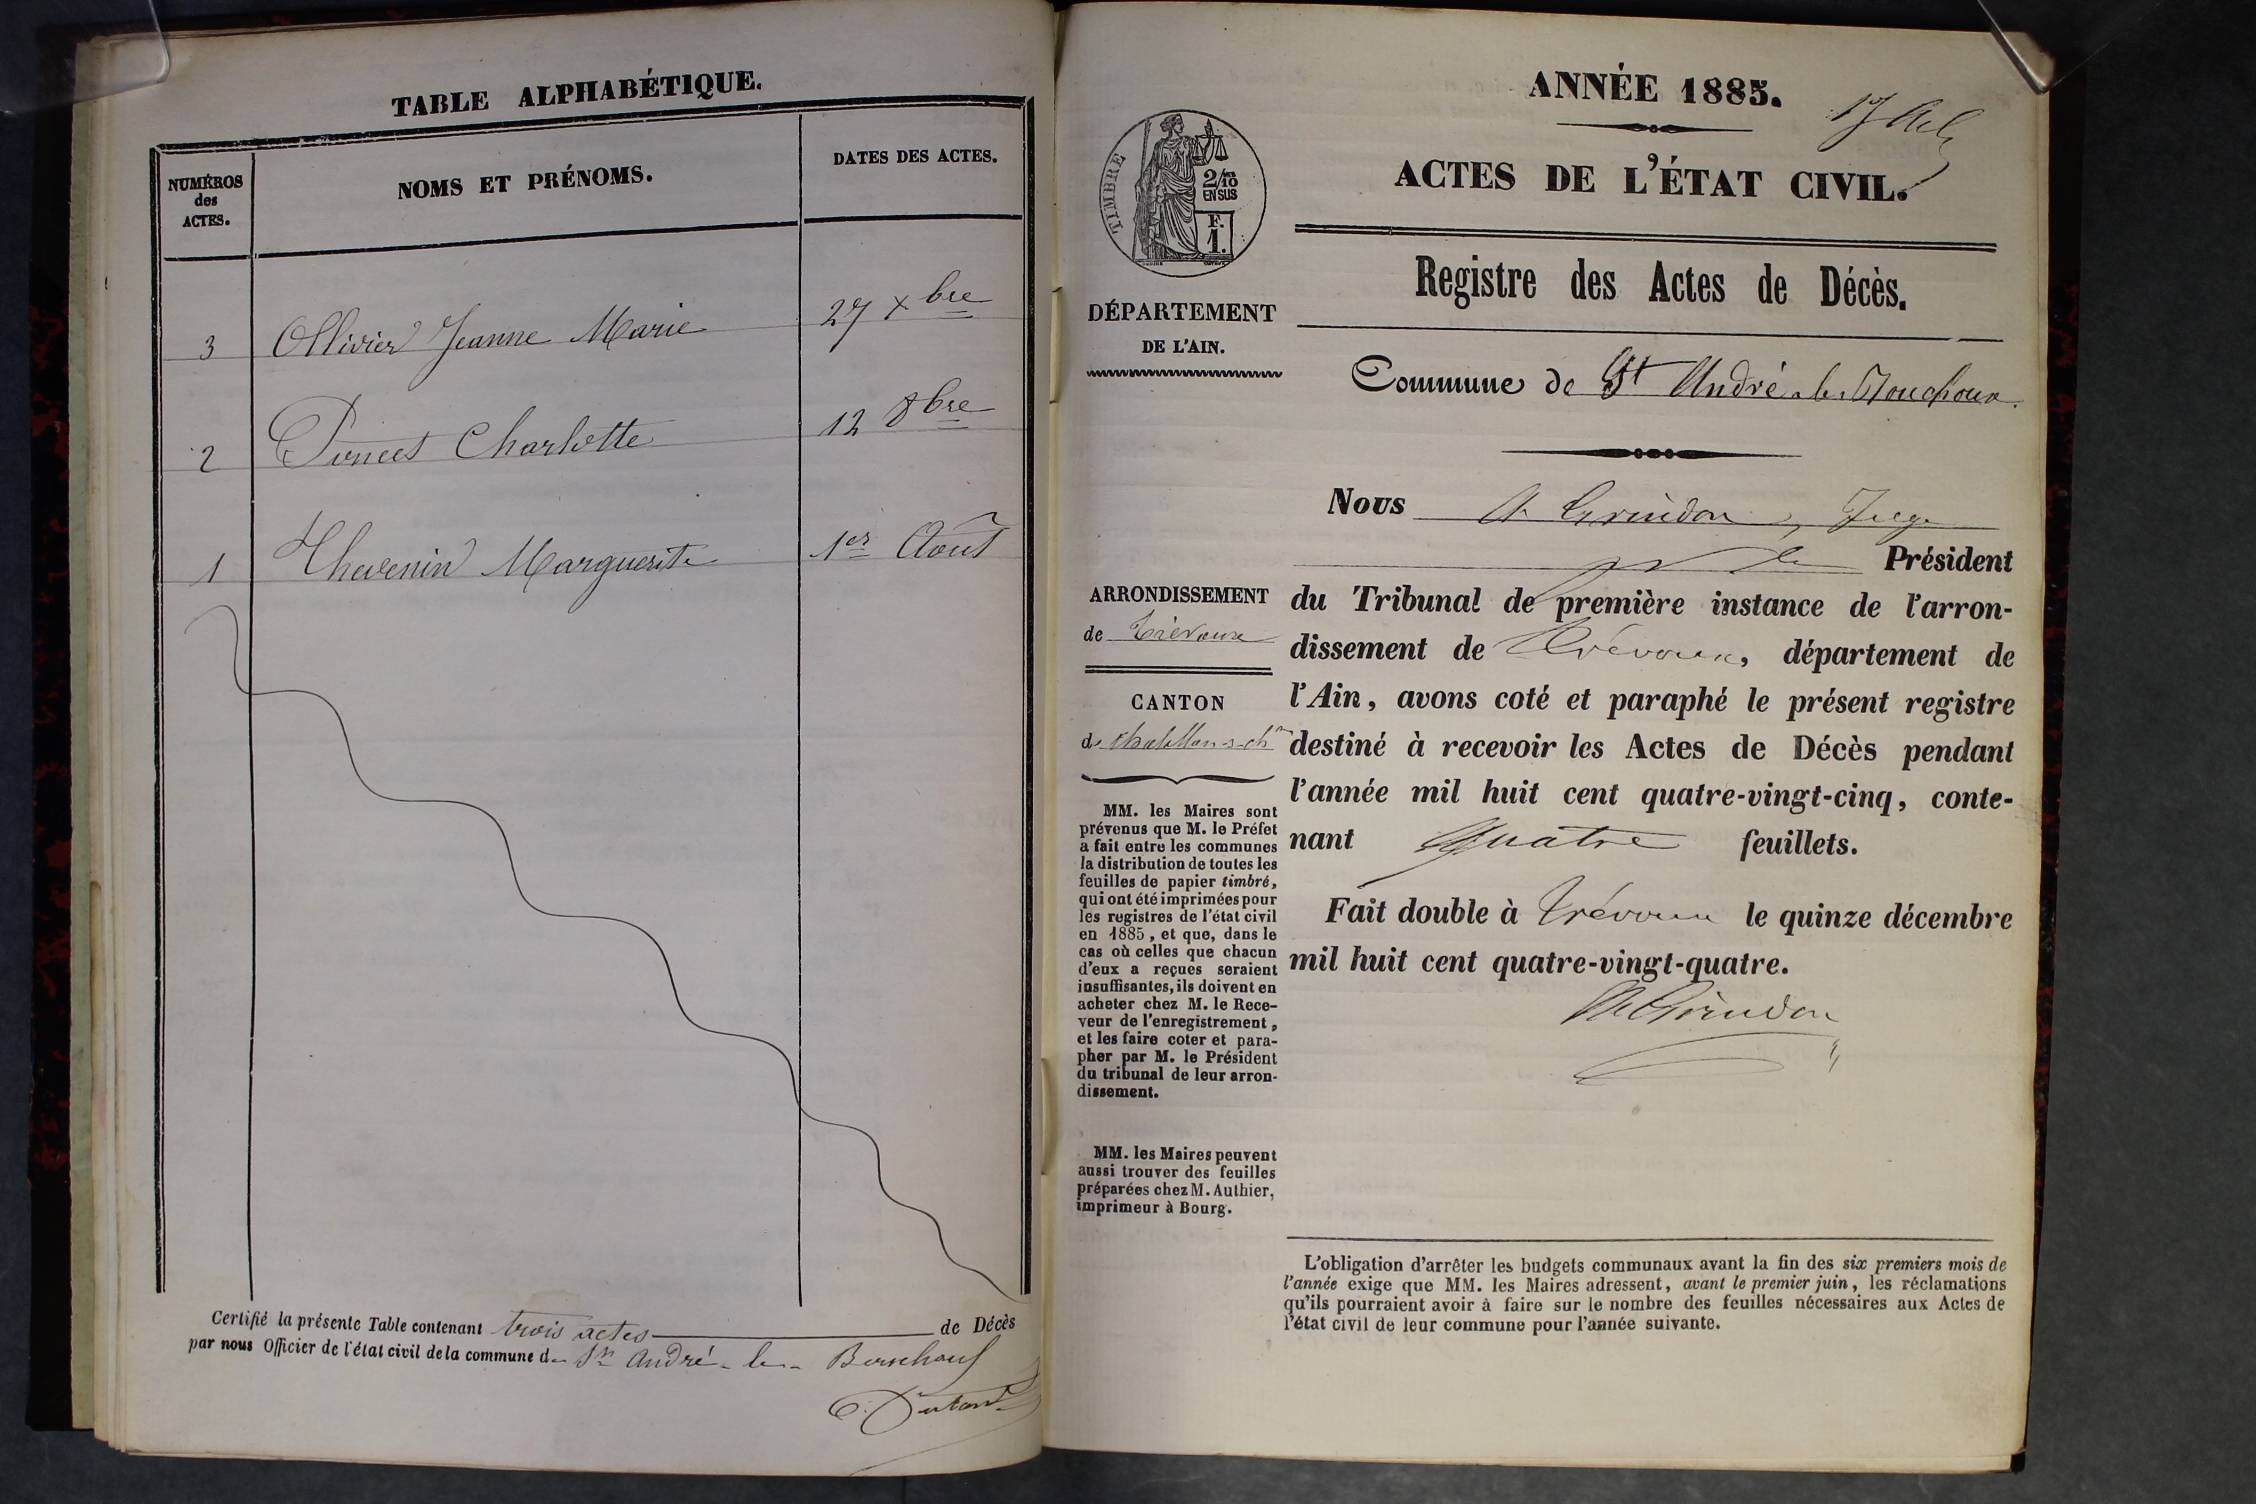 TABLE ALPHABÉTIQUE.
NUMÉROS
des
ACTES.
NOMS ET PRÉNOMS.
DATES DES ACTES.
3 Ollivier Jeanne Marie 27 Xbre
2 Charlotte 12 8bre
1 Thevenin Marguerite 1er Août
Certifié la présente Table contenant trois actes de Décès
par nous Officier de l'état civil de la commune de St André-le- Bouchoux
ANNÉE 1885.
ACTES DE L'ÉTAT CIVIL.
TIMBRE
2/10
EN SUS
F.
1.
DÉPARTEMENT
DE L'AIN.
Registre des Actes de Décès.
Commune de St André-le-Bouchoux.
Nous A Grindon, Juge
Président
ARRONDISSEMENT
de Trévoux
CANTON
de Chatillon-s-chne
du Tribunal de première instance de l'arron-
dissement de Trévoux, département de
l'Ain, avons coté et paraphé le présent registre
destiné à recevoir les Actes de Décès pendant
l'année mil huit cent quatre-vingt-cinq, conte-
nant Quatre feuillets.
Fait double à Trévoux le quinze décembre
mil huit cent quatre-vingt-quatre.
Grindon
MM. les Maires sont
prévenus que M. le Préfet
a fait entre les communes
la distribution de toutes les
feuilles de papier timbré,
qui ont été imprimées pour
les registres de l'état civil
en 1885, et que, dans le
cas où celles que chacun
d'eux a reçues seraient
insuffisantes, ils doivent en
acheter chez M. le Rece-
veur de l'enregistrement,
et les faire coter et para-
pher par M. le Président
du tribunal de leur arron-
dissement.
MM. les Maires peuvent
aussi trouver des feuilles
préparées chez M. Authier,
imprimeur à Bourg.
L'obligation d'arrêter les budgets communaux avant la fin des six premiers mois de
l'année exige que MM. les Maires adressent, avant le premier juin, les réclamations
qu'ils pourraient avoir à faire sur le nombre des feuilles nécessaires aux Actes de
l'état civil de leur commune pour l'année suivante.